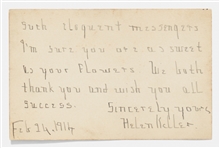 Such eloquent messengers
I'm sure you are as sweet
as your flowers. We both
thank you and wish you all
success.
Sincerely yours,
Feb 24, 1914 Helen Keller